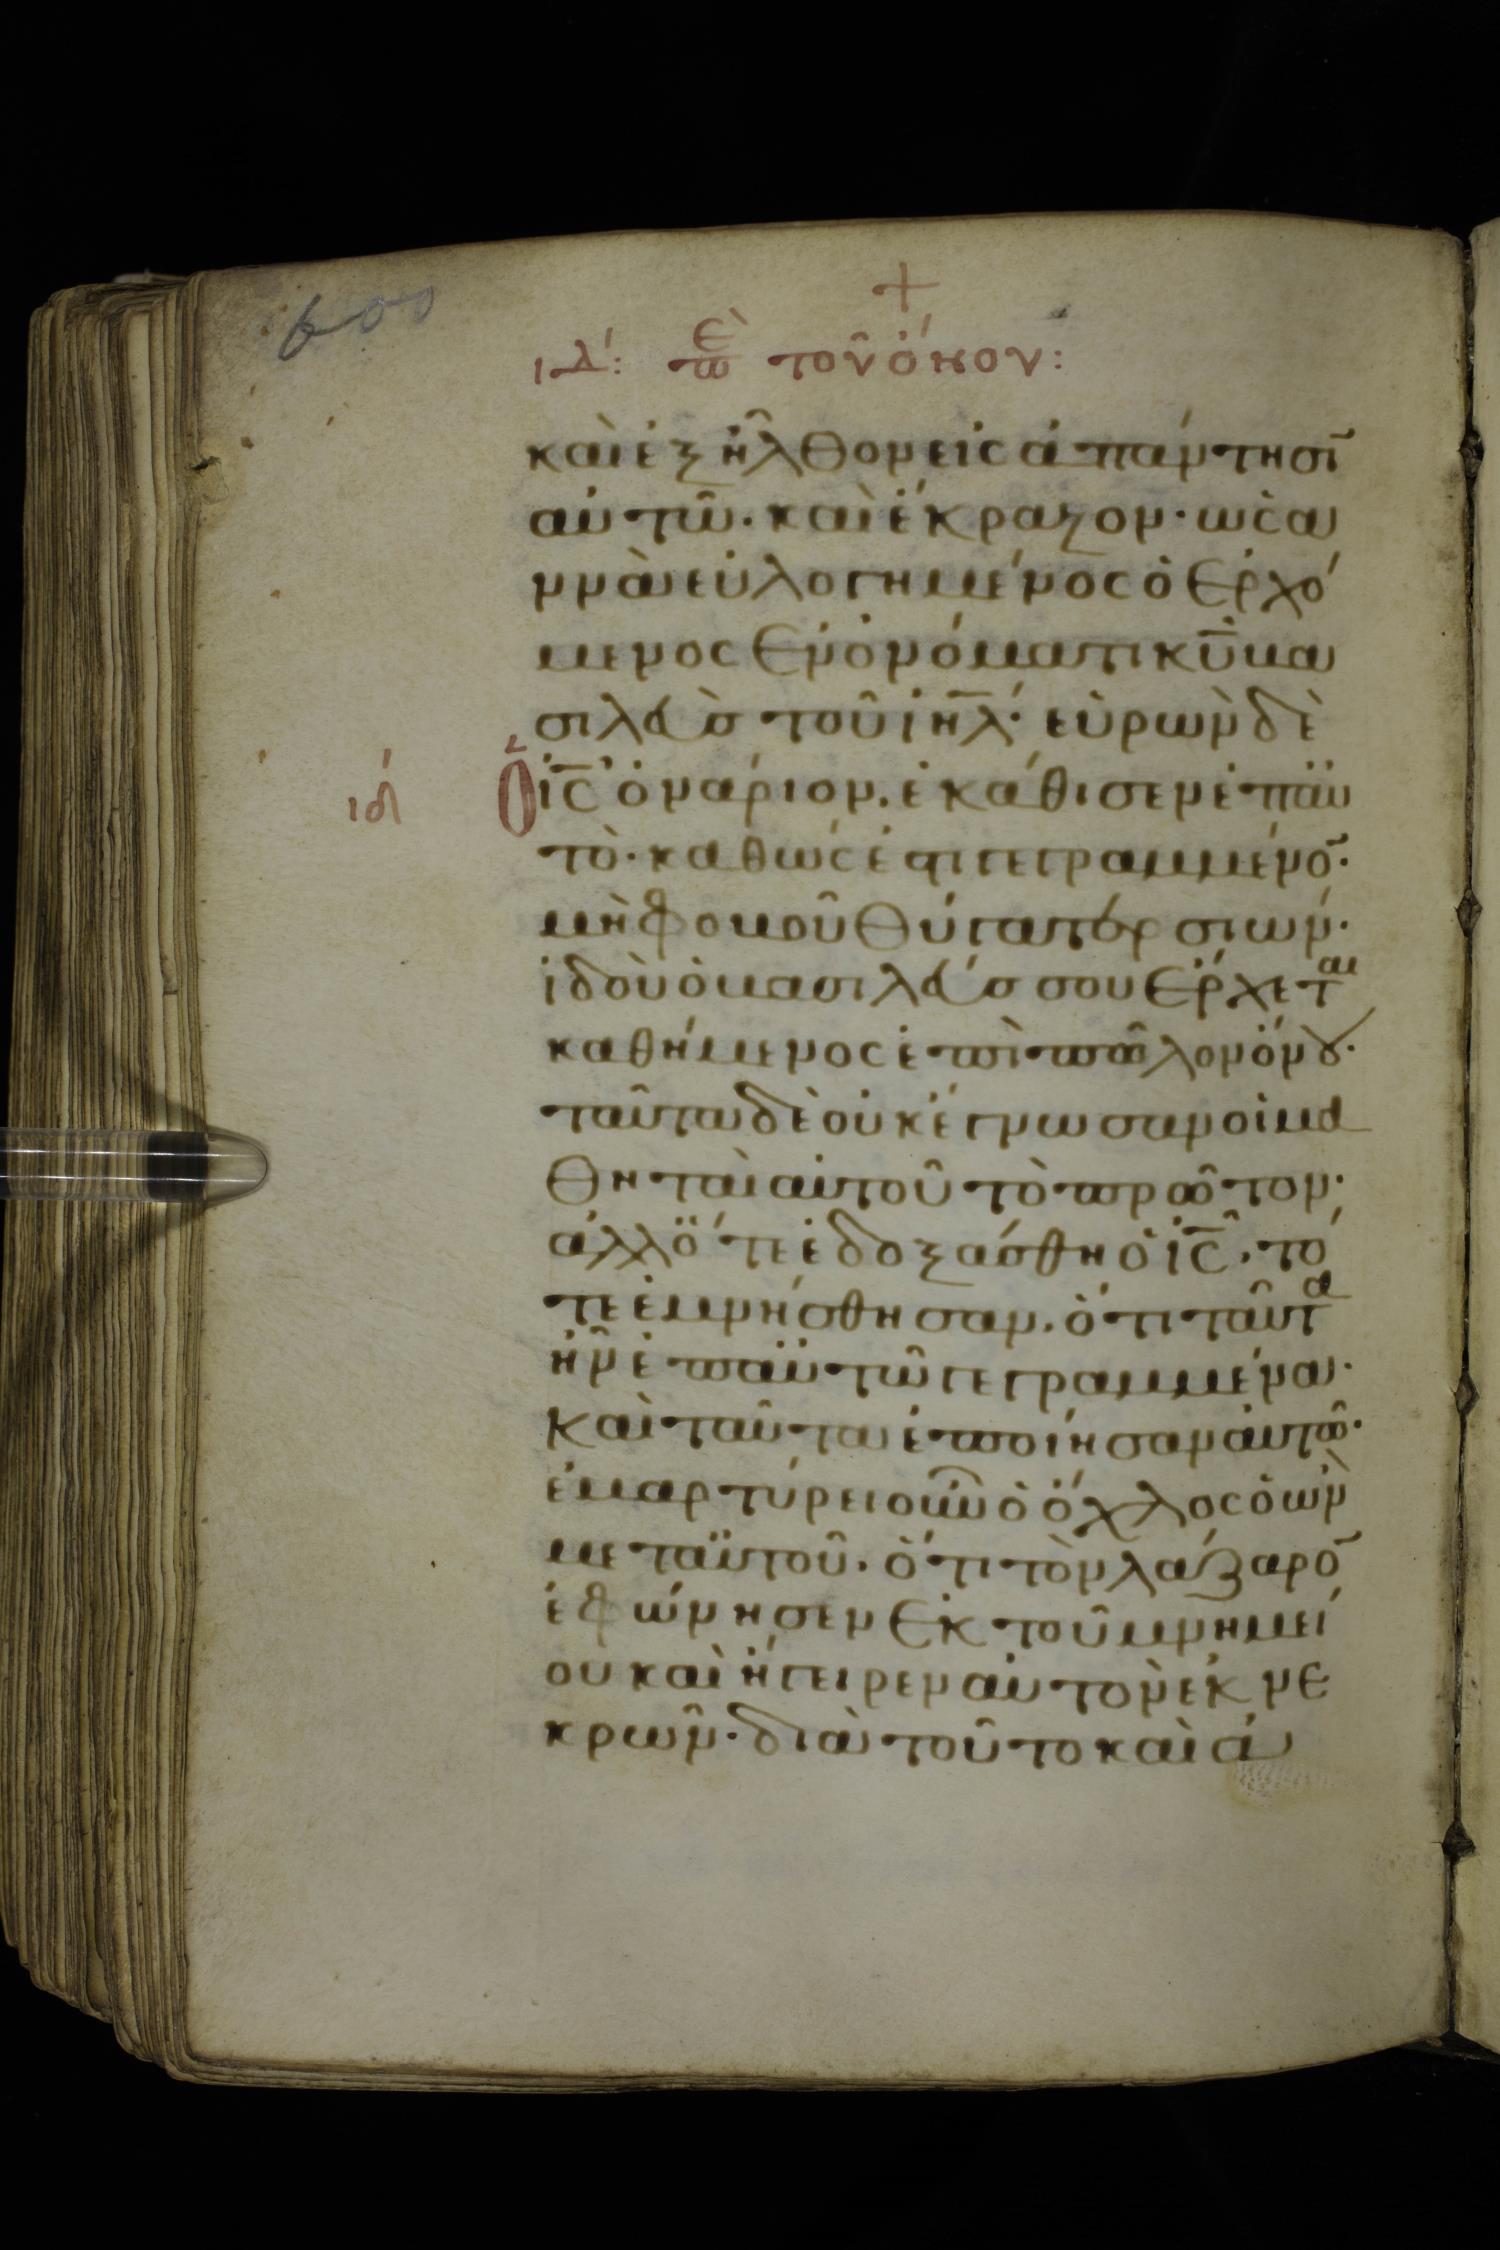 600
+
ιδ: περὶ τοῦ ὄνου:
καὶ ἐξῆλθον εἰς ἀπάντησῑ
αὐτῶ· καὶ ἔκραζον· ὡσα
ννὰ εὐλογημένος ὁ ἐρχό
μενος ἐν ὀνόματι κ̅υ̅ βα
σιλεὺσ τοῦ ἰη̅λ· εὑρὼν δὲ
ιδ Ὁ ἰ̅ς̅ ὀνάριον, ἐκάθισεν ἐπ αὐ
τὸ· καθώς ἐστι γεγραμμένο̅·
μὴ φοβοῦ θύγατερ σιών·
ἰδοὺ ὁ βασιλεύσ σου ἔρχεται
καθήμενος ἐπὶ πῶλον ὄνου·
ταῦτα δὲ οὐκ ἔγνωσαν οἱ μα
θηταὶ αὐτοῦ τὸ πρῶτον·
ἀλλ ὅτε ἐδοξάσθη ὁ ἰ̅ς̅, τό
τε ἐμνήσθησαν, ὅτι ταῦτα
ἦν ἐπ αὐτῶ γεγραμμένα·
καὶ ταῦτα ἐποίησαν αὐτῶ·
ἐμαρτύρει οὖν ὁ ὄχλος ὁ ὢν
μετ αὐτοῦ, ὅτι τὸν λάζαρο̅
ἐφώνησεν ἐκ τοῦ μνημεί
ου καὶ ἤγειρεν αὐτὸν ἐκ νε
κρῶν· διὰ τοῦτο καὶ ἁ